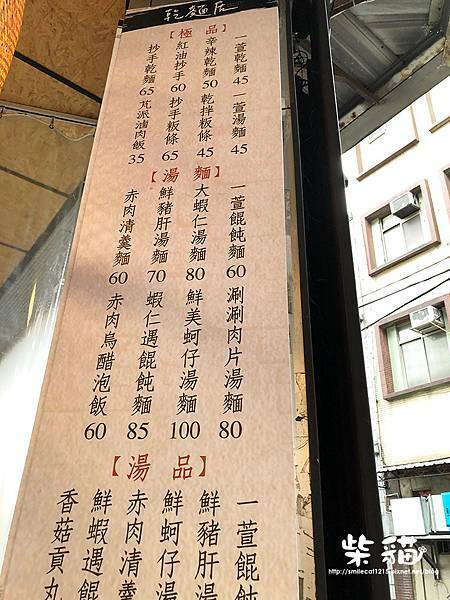 乾麵居
【極品】
一萱乾麵 45
一萱湯麵 45
辛辣乾麵 50
乾拌粄條 45
紅油抄手 60
抄手粄條 65
抄手乾麵 65
芃派滷肉飯 35
【湯麵】
一萱餛飩麵 60
涮涮肉片湯麵 80
大蝦仁湯麵 80
鮮美蚵仔湯麵 100
鮮豬肝湯麵 70
蝦仁遇餛飩麵 85
赤肉清羹麵 60
赤肉烏醋泡飯 60
【湯品】
一萱餛
鮮豬肝湯
鮮蚵仔湯
赤肉清羹
鮮蝦遇餛
香菇貢丸
柴貓
http://smilecat1215.pixnet.net/blog